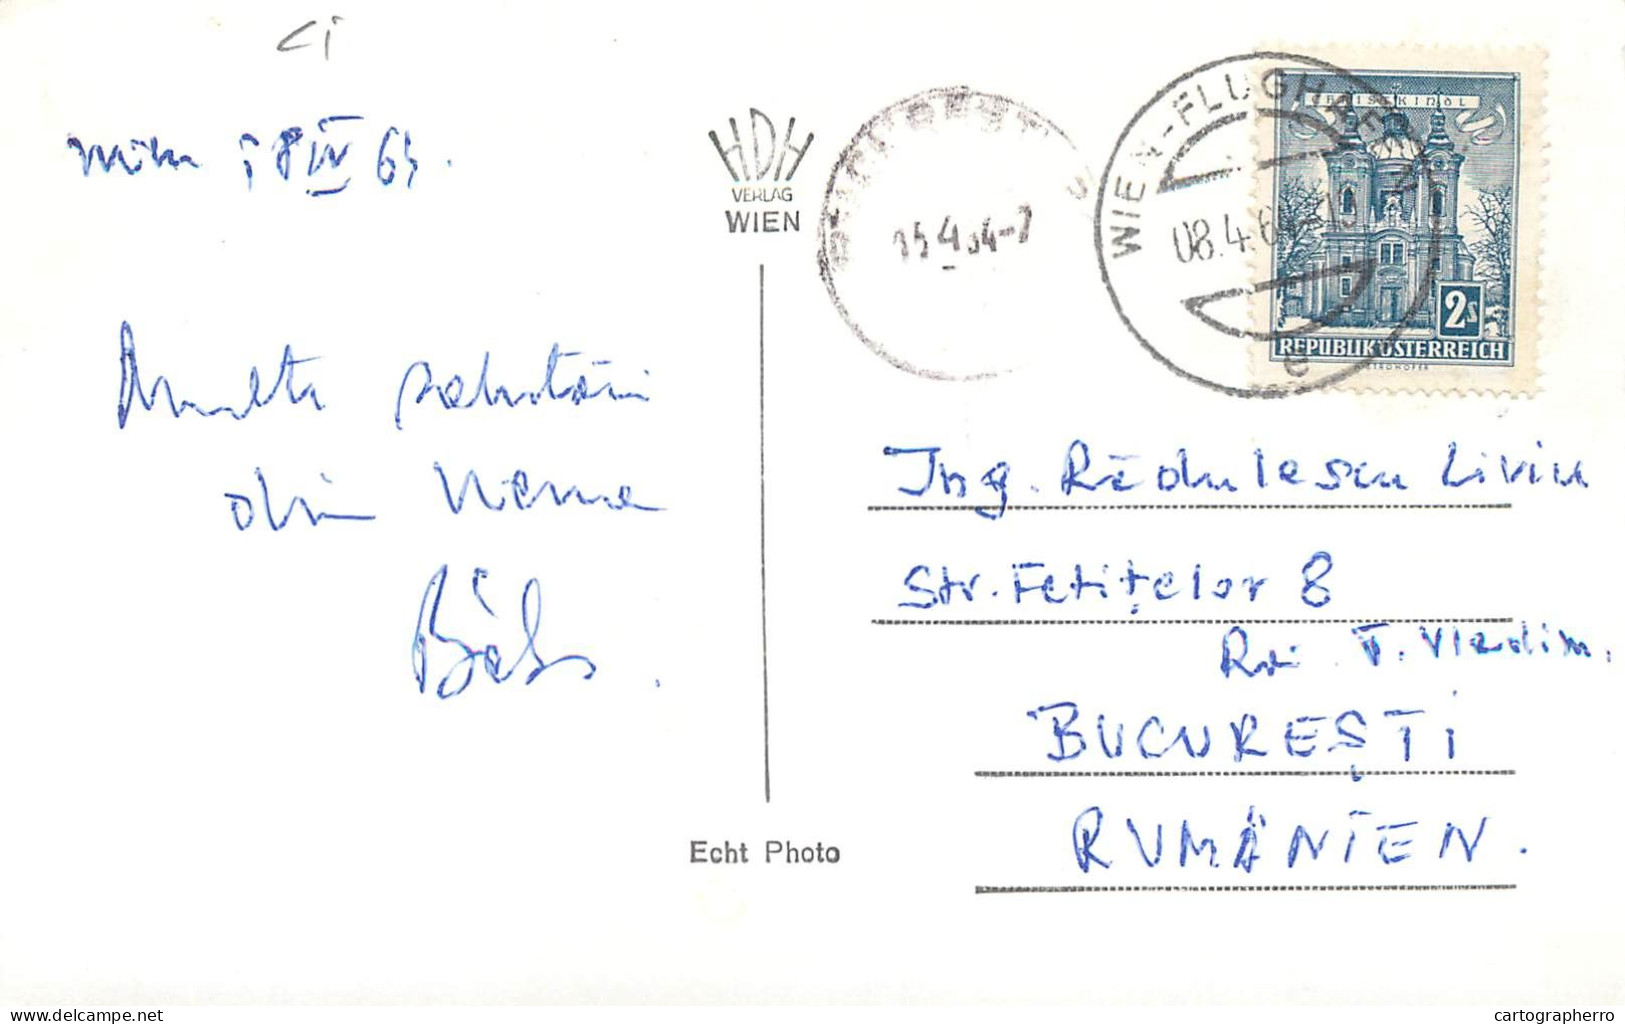 Wien, 8 IV 64.
Multe salutări
din Viena
HDH
VERLAG
WIEN
BUCUREȘTI
15.4.64-7
WIEN-FLUGHAFEN
08.4.64-
e
CHRISTKINDL
2s
REPUBLIK ÖSTERREICH
Ing. Rădulescu Liviu
Str. Fetițelor 8
Rai. T. Vladim.
BUCUREȘTI
RUMÄNIEN.
Echt Photo
delcampe.net
cartographerro